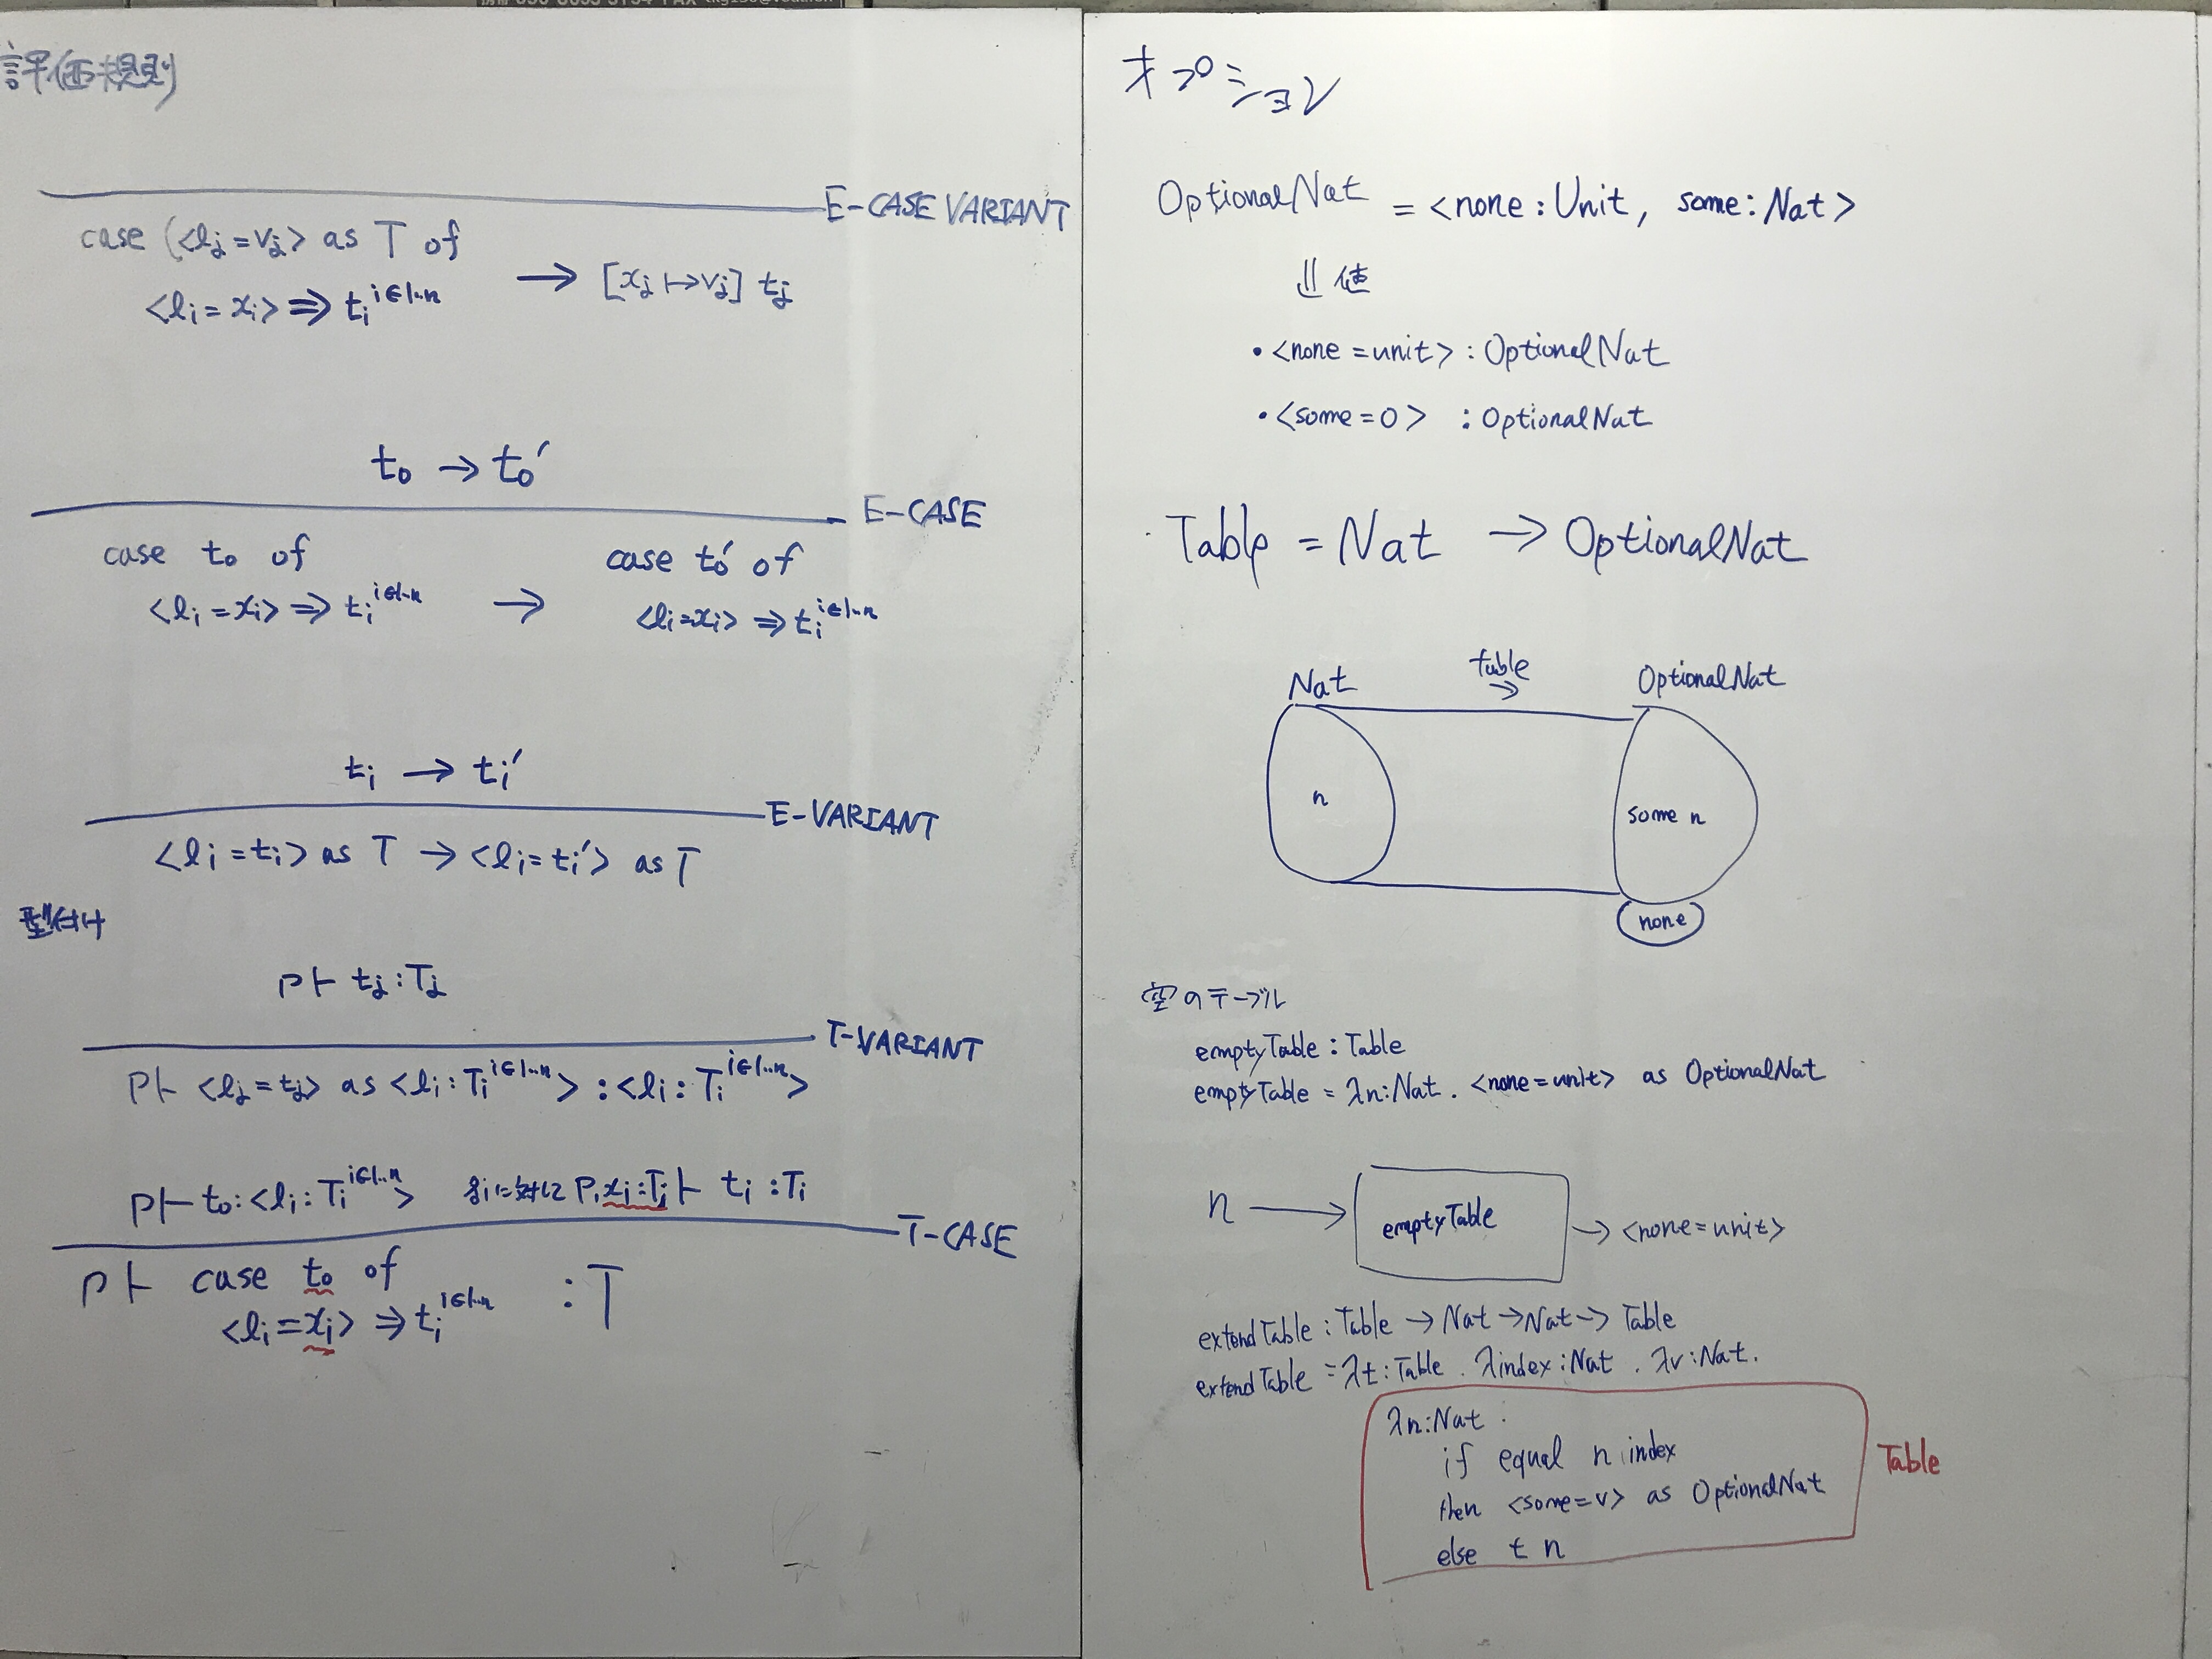 評価規則
E-CASE VARIANT
case (<lj = vj> as T of
<li = xi> ⇒ ti i∈1..n → [xj ↦ vj] tj
t0 → t0'
E-CASE
case t0 of
<li = xi> ⇒ ti i∈1..n
→
case t0' of
<li = xi> ⇒ ti i∈1..n
ti → ti'
E-VARIANT
<li = ti> as T → <li = ti'> as T
型付け
Γ⊢ tj : Tj
T-VARIANT
Γ⊢ <lj = tj> as <li : Ti i∈1..n> : <li : Ti i∈1..n>
Γ⊢ t0 : <li : Ti i∈1..n> 各iに対して Γ, xi : Ti ⊢ ti : Ti
T-CASE
Γ⊢ case t0 of
<li = xi> ⇒ ti i∈1..n : T
オプション
OptionalNat = <none : Unit, some : Nat>
⇓ 値
・<none = unit> : OptionalNat
・<some = 0> : OptionalNat
Table = Nat → OptionalNat
Nat table → OptionalNat
n some n
none
空のテーブル
emptyTable : Table
emptyTable = λn:Nat. <none = unit> as OptionalNat
n → emptyTable → <none = unit>
extendTable : Table → Nat → Nat → Table
extendTable = λt:Table. λindex:Nat. λv:Nat.
λn:Nat.
if equal n index
then <some = v> as OptionalNat
else t n
Table